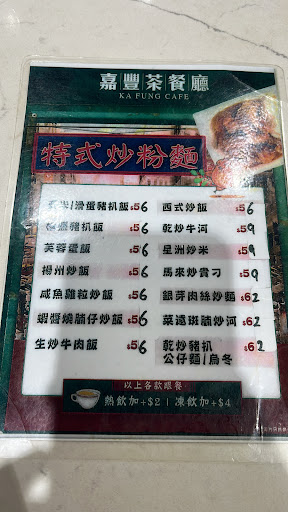 嘉豐茶餐廳
KA FUNG CAFE
特式炒粉麵
/滑蛋豬扒飯 $56
豬扒飯 $56
芙蓉蛋飯 $56
揚州炒飯 $56
咸魚雞粒炒飯 $56
蝦醬燒腩仔炒飯 $56
生炒牛肉飯 $56
西式炒飯 $56
乾炒牛河 $59
星洲炒米 $59
馬來炒貴刁 $59
銀芽肉絲炒麵 $62
菜遠斑腩炒河 $62
乾炒豬扒
公仔麵/烏冬 $62
以上各款跟餐
熱飲加+$2 | 凍飲加+$4